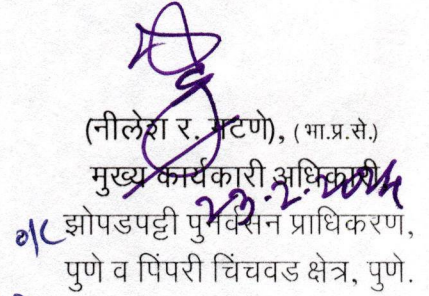 (नीलेश र. गटणे), (भा.प्र.से.)
मुख्य कार्यकारी अधिकारी,
23.2.2024
o/c झोपडपट्टी पुनर्वसन प्राधिकरण,
पुणे व पिंपरी चिंचवड क्षेत्र, पुणे.